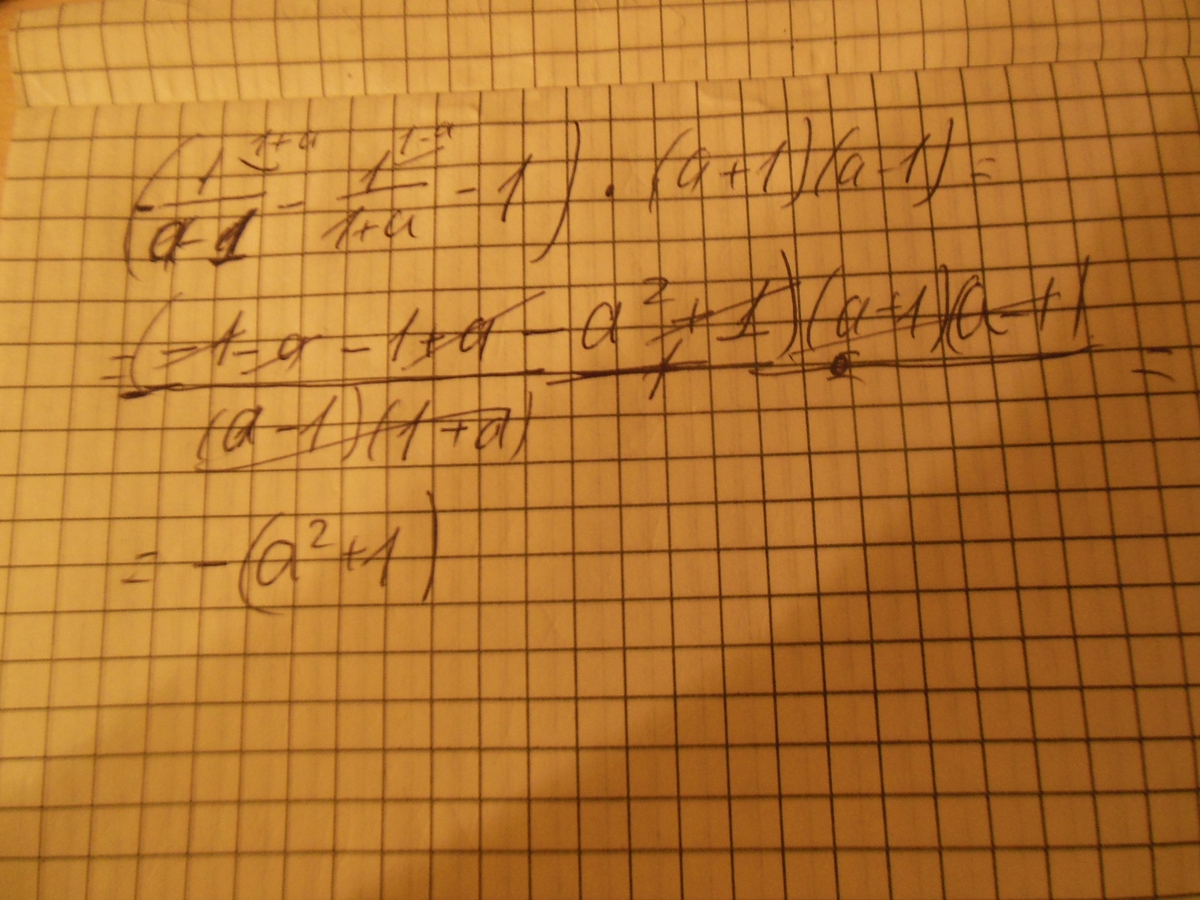 (-1/(a-1) - 1/(1+a) - 1) · (a+1)(a-1) =
1+a 1-a
= (-1-a-1+a-a²+1)(a-1)(a+1) / (a-1)(1+a) · 1 =
= -(a²+1)